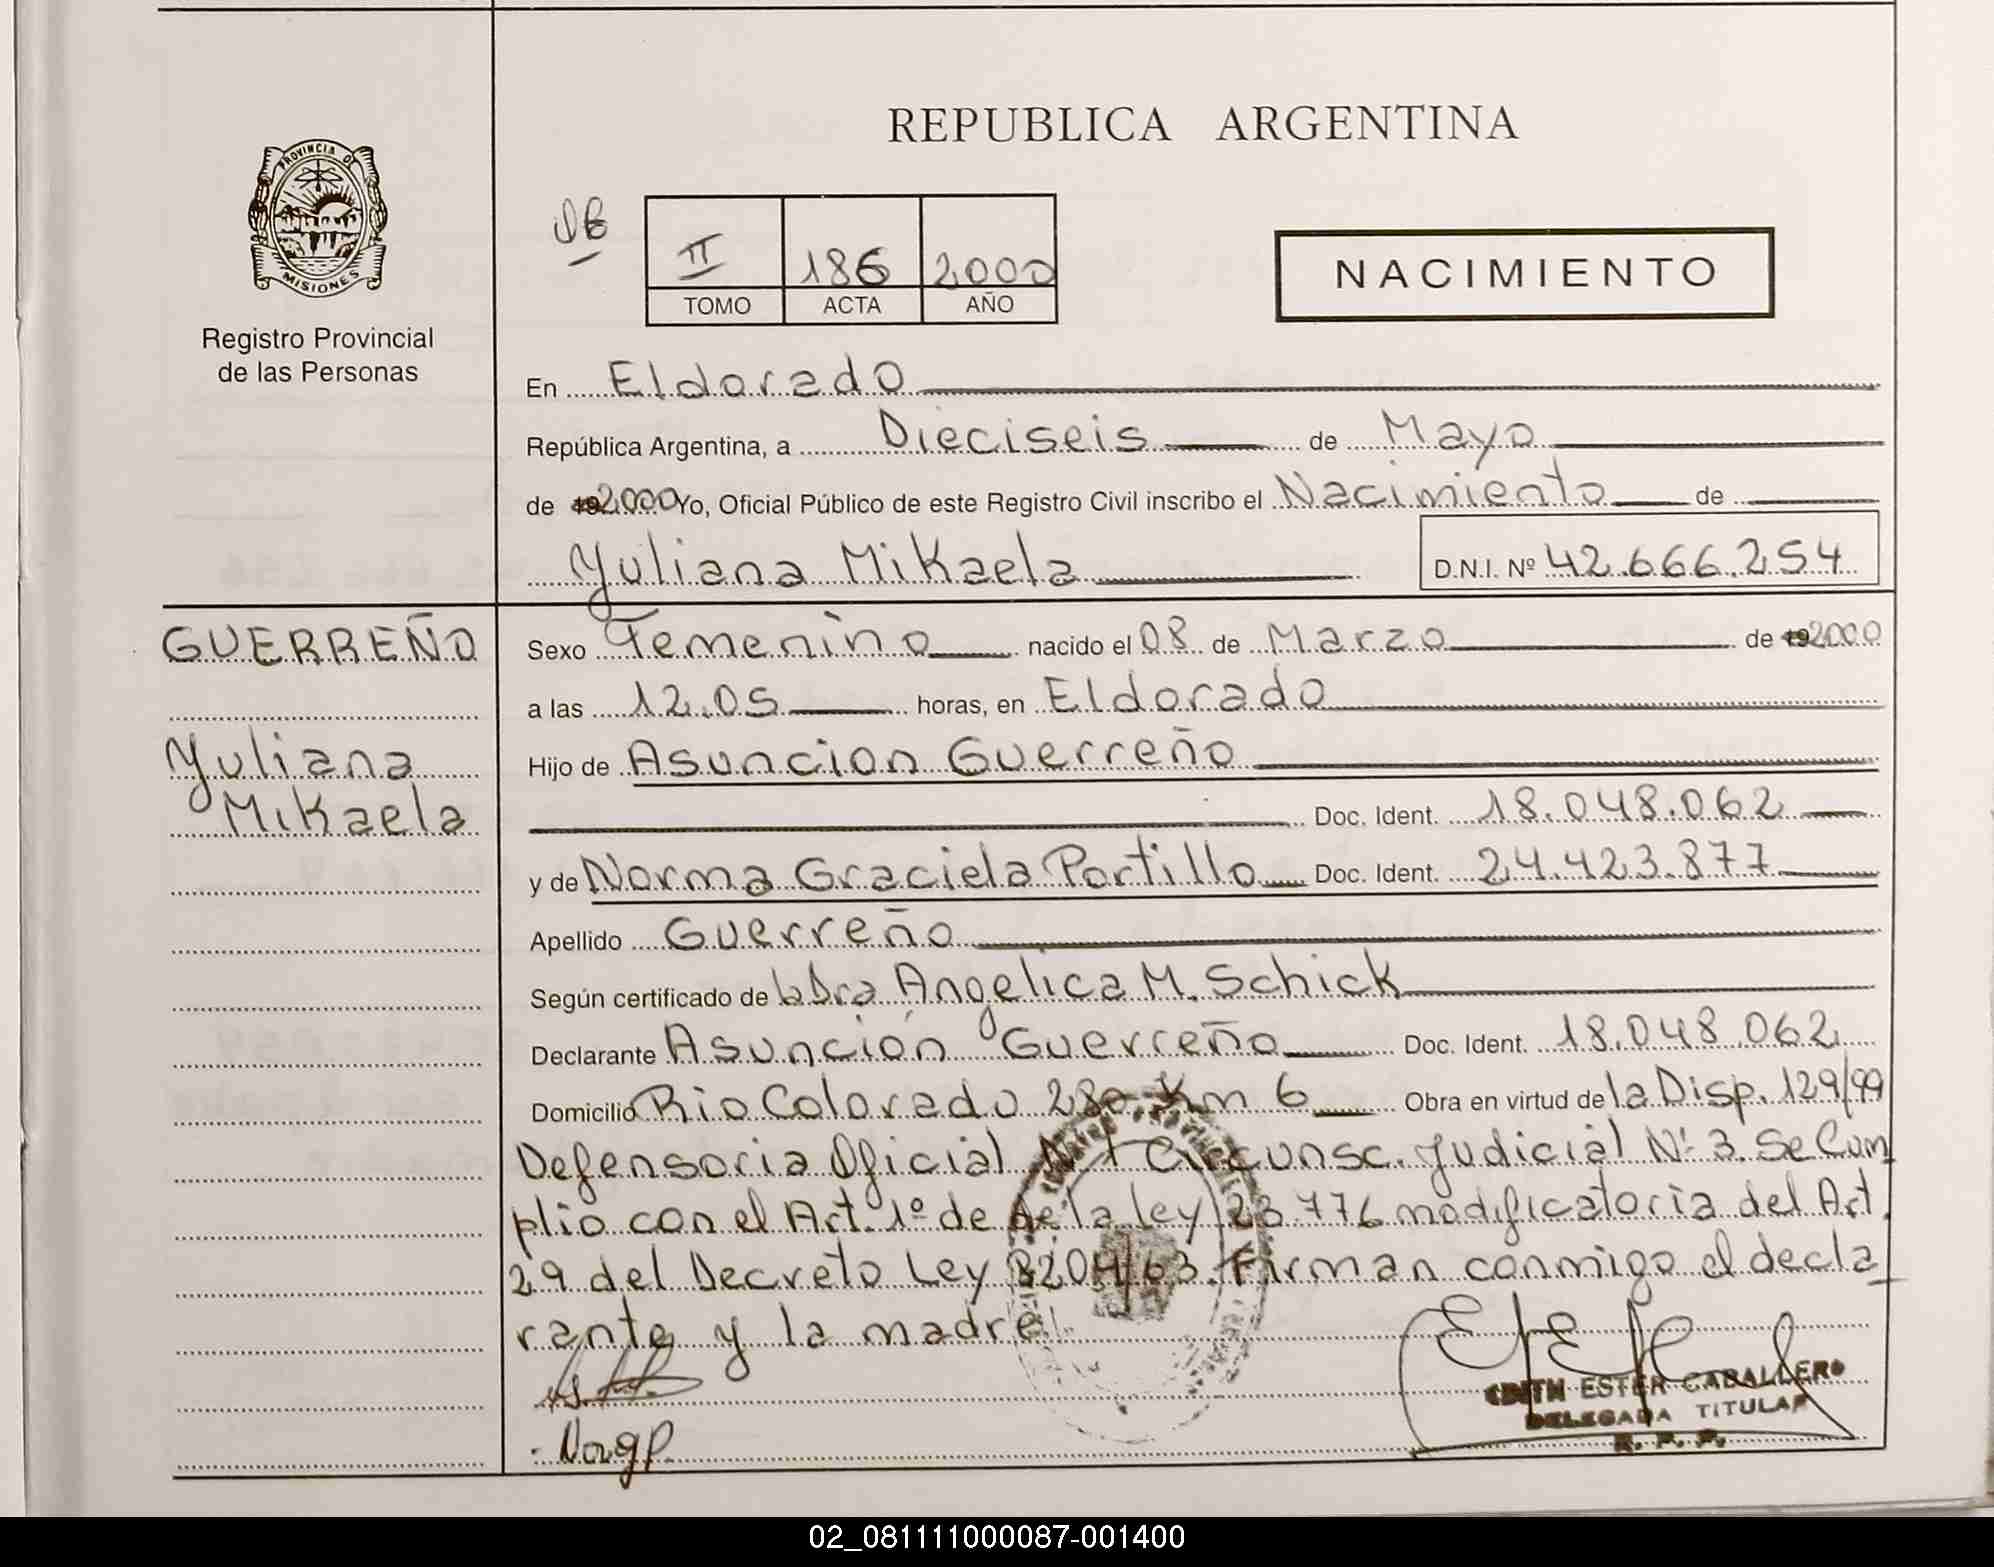 REPUBLICA ARGENTINA
PROVINCIA DE
MISIONES
Registro Provincial
de las Personas
II 186 2000
TOMO ACTA AÑO
NACIMIENTO
En Eldorado
República Argentina, a Dieciseis de Mayo
de 19 2000 Yo, Oficial Público de este Registro Civil inscribo el Nacimiento de
Yuliana Mikaela D.N.I. Nº 42.666.254
GUERREÑO
Yuliana
Mikaela
Sexo Femenino nacido el 08 de Marzo de 19 2000
a las 12.05 horas, en Eldorado
Hijo de Asuncion Guerreño
Doc. Ident. 18.048.062
y de Norma Graciela Portillo Doc. Ident. 24.423.877
Apellido Guerreño
Según certificado de la Dra Angelica M. Schick
Declarante Asunción Guerreño Doc. Ident. 18.048.062
Domicilio Rio Colorado 280 Km 6 Obra en virtud de la Disp. 129/99
Defensoria Oficial Nº 1 Circunsc. Judicial Nº 3. Se Cum
plio con el Art. 1º de de la ley 23.776 modificatoria del Art.
29 del Decreto Ley 8204/63. Firman conmigo el decla
rante y la madre.
EDITH ESTER CABALLERO
DELEGADA TITULAR
R. P. P.
02_081111000087-001400